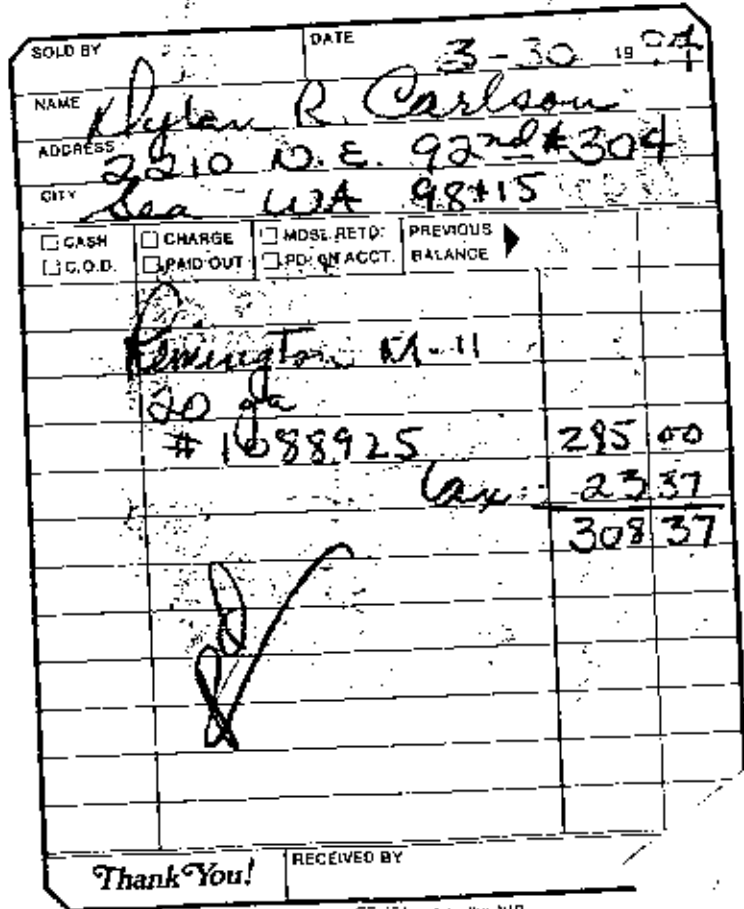 SOLD BY DATE 3-30 19 94
NAME Dylan R. Carlson
ADDRESS 2210 N.E. 92nd #304
CITY Sea WA 98115
CASH CHARGE MDSE. RETD. PREVIOUS BALANCE
C.O.D. PAID OUT PD. ON ACCT.
Remington M-11
20 ga
#1088925 285 00
Tax 23 37
308 37
Thank You! RECEIVED BY